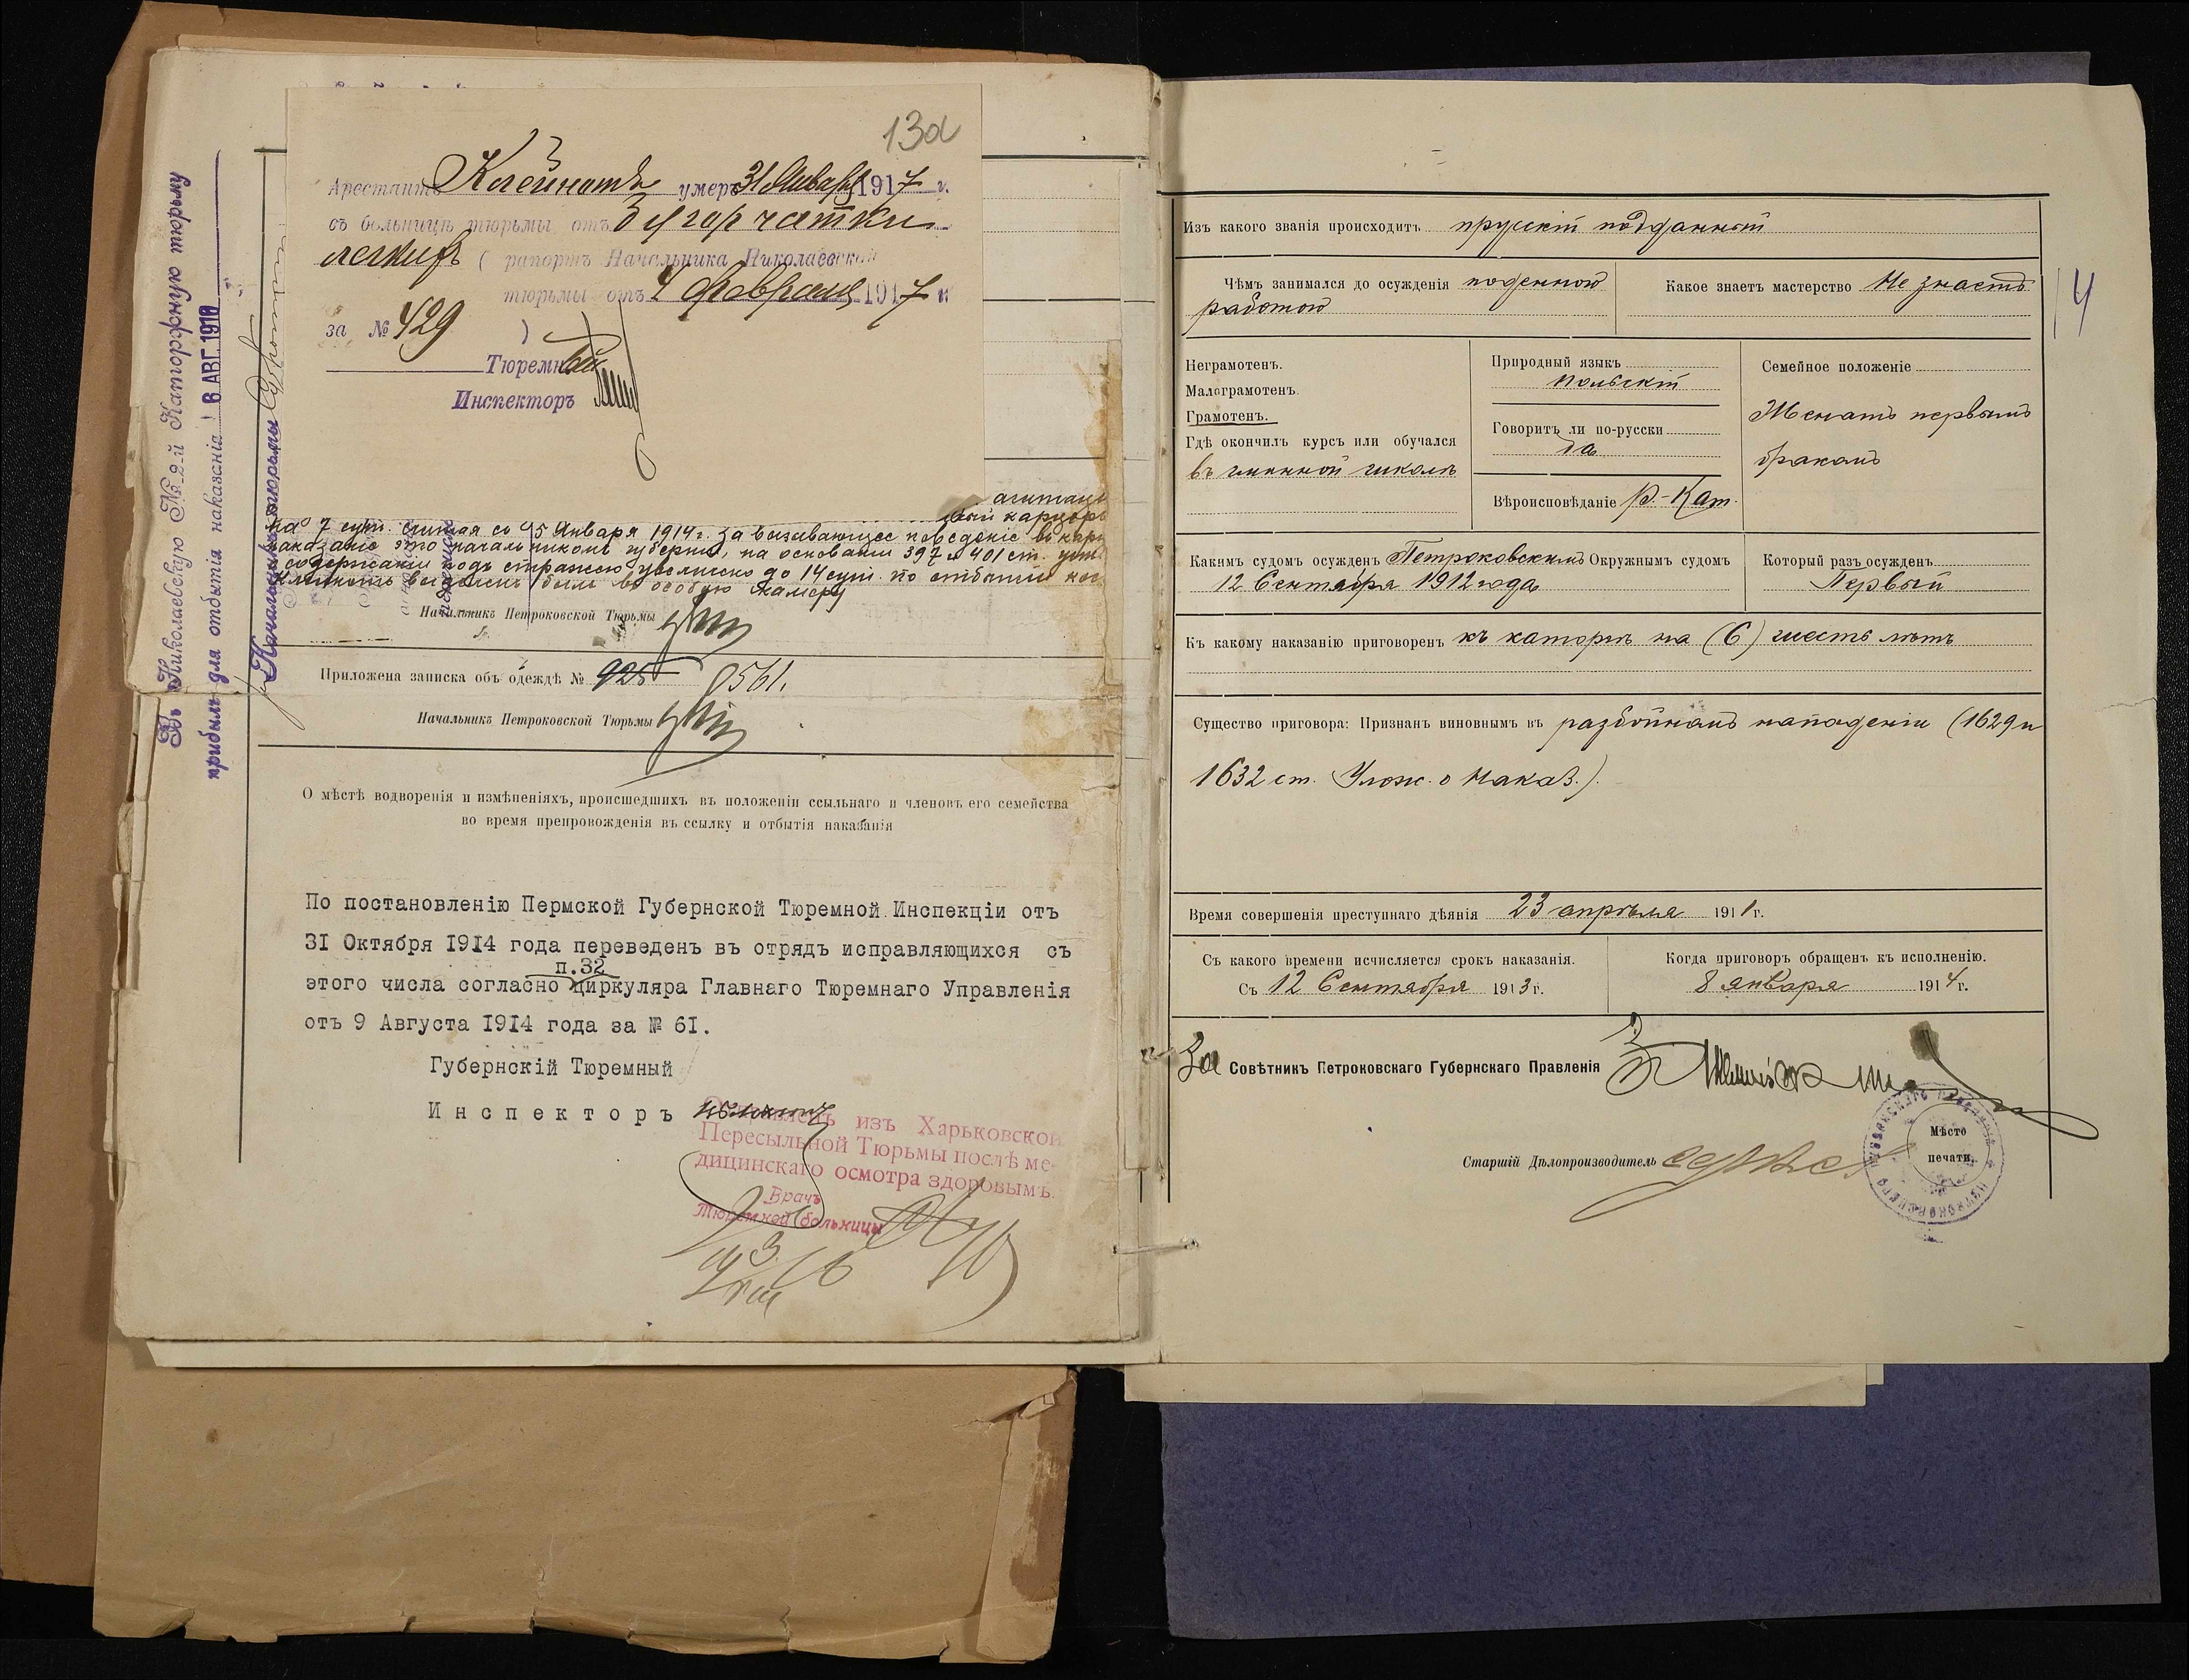 13а
Арестантъ Клейнотъ умеръ 31 Января 1917 г.
съ больницѣ тюрьмы отъ бугорчатки
легкихъ ( рапортъ Начальника Николаевской
тюрьмы отъ 4 Февраля 1917 г.
за № 429 )
Тюремный
Инспекторъ
Въ Николаевскую № 2-й Каторжную тюрьму
прибылъ для отбытія наказанія 6 АВГ. 1910
Начальникъ тюрьмы
на 7 сут. считая со 5 Января 1914 г. за вызывающее поведеніе
наказаніе это начальникомъ губерніи, на основаніи 397 и 401 ст. уст.
о содержащ. подъ стражею увеличено до 14 сут. по отбытіи
въ особую камеру
Начальникъ Петроковской Тюрьмы
Приложена записка объ одеждѣ № 925 0561.
Начальникъ Петроковской Тюрьмы
О мѣстѣ водворенія и измѣненіяхъ, происшедшихъ въ положеніи ссыльнаго и членовъ его семейства
во время препровожденія въ ссылку и отбытія наказанія
По постановленію Пермской Губернской Тюремной Инспекціи отъ
31 Октября 1914 года переведенъ въ отрядъ исправляющихся съ
п.32
этого числа согласно циркуляра Главнаго Тюремнаго Управленія
отъ 9 Августа 1914 года за № 61.
Губернскій Тюремный
Инспекторъ
Отправленъ изъ Харьковской
Пересыльной Тюрьмы послѣ ме-
дицинскаго осмотра здоровымъ.
Врачъ
Тюремной больницы
14
Изъ какого званія происходитъ прусскій подданный
Чѣмъ занимался до осужденія поденною
работою
Какое знаетъ мастерство Не знаетъ
Неграмотенъ.
Малограмотенъ.
Грамотенъ.
Гдѣ окончилъ курсъ или обучался
въ гминной школѣ
Природный языкъ
польскій
Говоритъ ли по-русски
да
Вѣроисповѣданіе р.-Кат.
Семейное положеніе
Женатъ первымъ
бракомъ
Какимъ судомъ осужденъ Петроковскимъ Окружнымъ судомъ
12 Сентября 1912 года
Который разъ осужденъ
Первый
Къ какому наказанію приговоренъ къ каторгѣ на (6) шесть лѣтъ
Существо приговора: Признанъ виновнымъ въ разбойномъ нападеніи (1629 и
1632 ст. Улож. о Наказ.).
Время совершенія преступнаго дѣянія 23 апрѣля 1911 г.
Съ какого времени исчисляется срокъ наказанія.
Съ 12 Сентября 1913 г.
Когда приговоръ обращенъ къ исполненію.
8 января 1914 г.
За Совѣтникъ Петроковскаго Губернскаго Правленія
Старшій Дѣлопроизводитель
Мѣсто
печати.